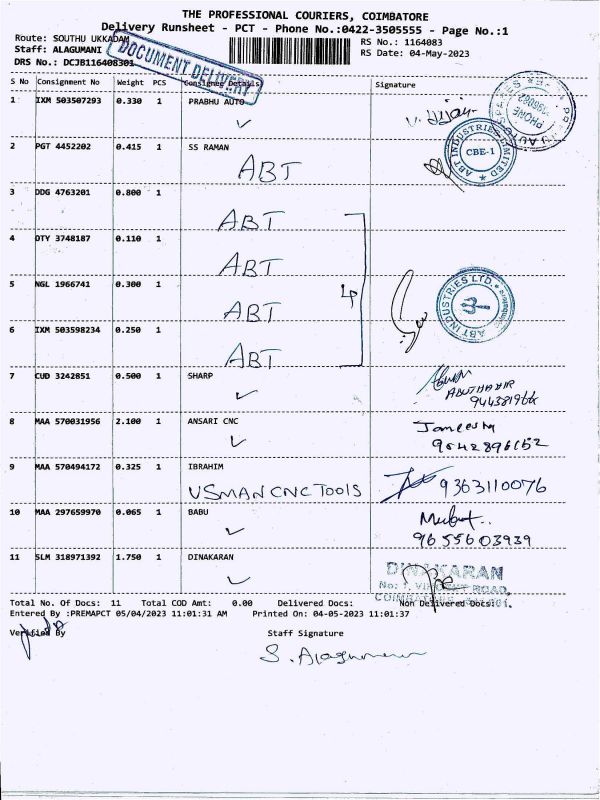 THE PROFESSIONAL COURIERS, COIMBATORE
Delivery Runsheet - PCT - Phone No.:0422-3505555 - Page No.:1
Route: SOUTHU UKKADAM
RS No.: 1164083
Staff: ALAGUMANI
RS Date: 04-May-2023
DRS No.: DCJB116408301
DOCUMENT DELIVERY
S No Consignment No Weight PCS Consignee Details Signature
1 IXM 503507293 0.330 1 PRABHU AUTO
PHONE
2 PGT 4452202 0.415 1 SS RAMAN
ABT
ABT INDUSTRIES LIMITED
CBE-1
3 DDG 4763201 0.800 1
ABT
4 DTY 3748187 0.110 1
ABT
5 NGL 1966741 0.300 1
ABT
4P
ABT INDUSTRIES LTD.
6 IXM 503598234 0.250 1
ABT
7 CUD 3242851 0.500 1 SHARP
8 MAA 570031956 2.100 1 ANSARI CNC
9 MAA 570494172 0.325 1 IBRAHIM
USMAN CNC TOOLS
9363110076
10 MAA 297659970 0.065 1 BABU
9655603939
11 SLM 318971392 1.750 1 DINAKARAN
DINAKARAN
Total No. Of Docs: 11 Total COD Amt: 0.00 Delivered Docs: Non Delivered Docs:
Entered By :PREMAPCT 05/04/2023 11:01:31 AM Printed On: 04-05-2023 11:01:37
Verified By Staff Signature
S. Alagumani